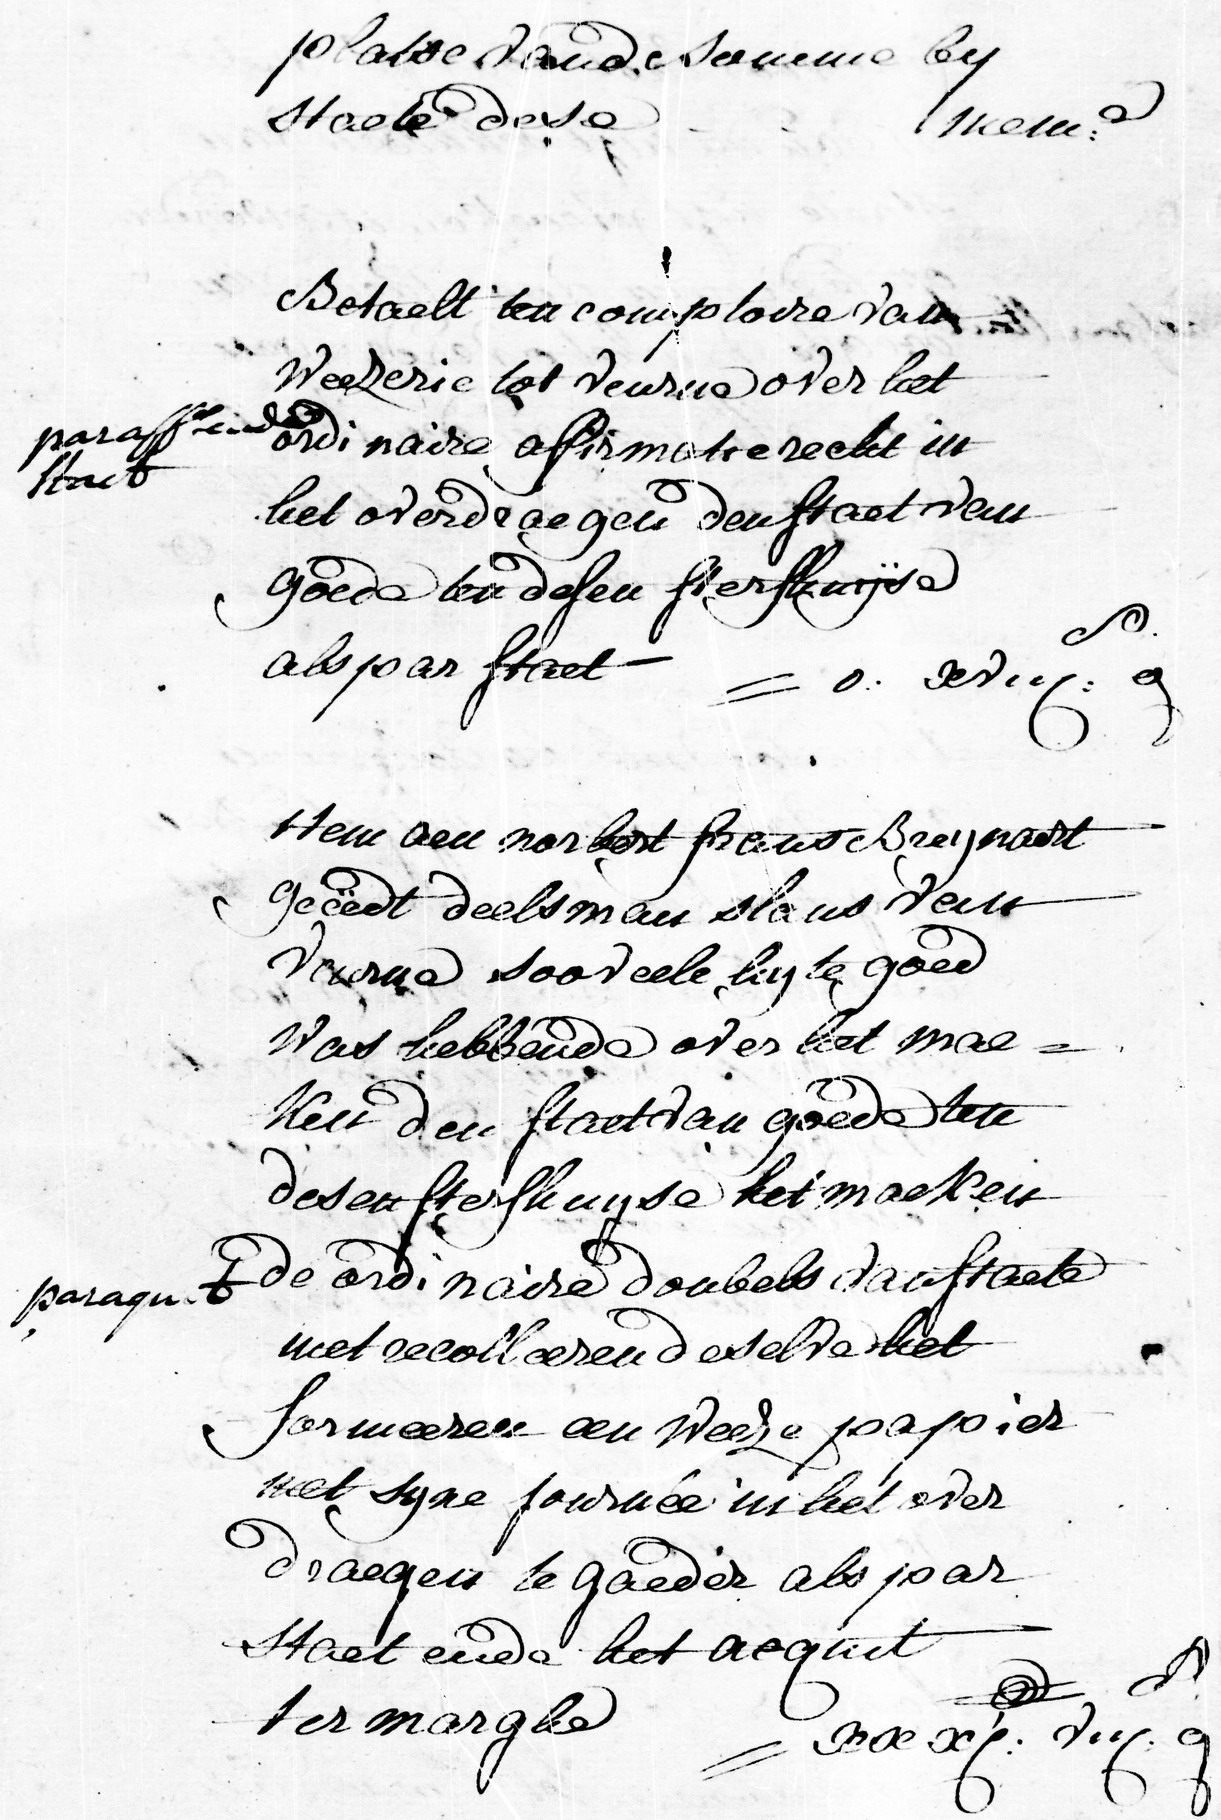 platse vande somme by
staete dese memᵉ
Betaelt ten comptoire van
Weezerie tot veurne over het
paraff ende ordinaire affirmatie recht in
staet
het overdraegen den staet van
goede ten desen sterfhuijse
als par staet = 0. xviij: g
ß.
Item aen norbert frans Breynaert
geëedt deelsman slans van
veurne soo veele hy te goed
was hebbende over het mae =
ken den staet van goede ten
desen sterfhuyse het maeken
paraqut de ordinaire doubels van staete
met recolleeren deselve het
formeeren een weeze papier
met syne journée in het over
draegen te gaeder als par
staet ende het acquit
ter marghe = xxxj: viij: g